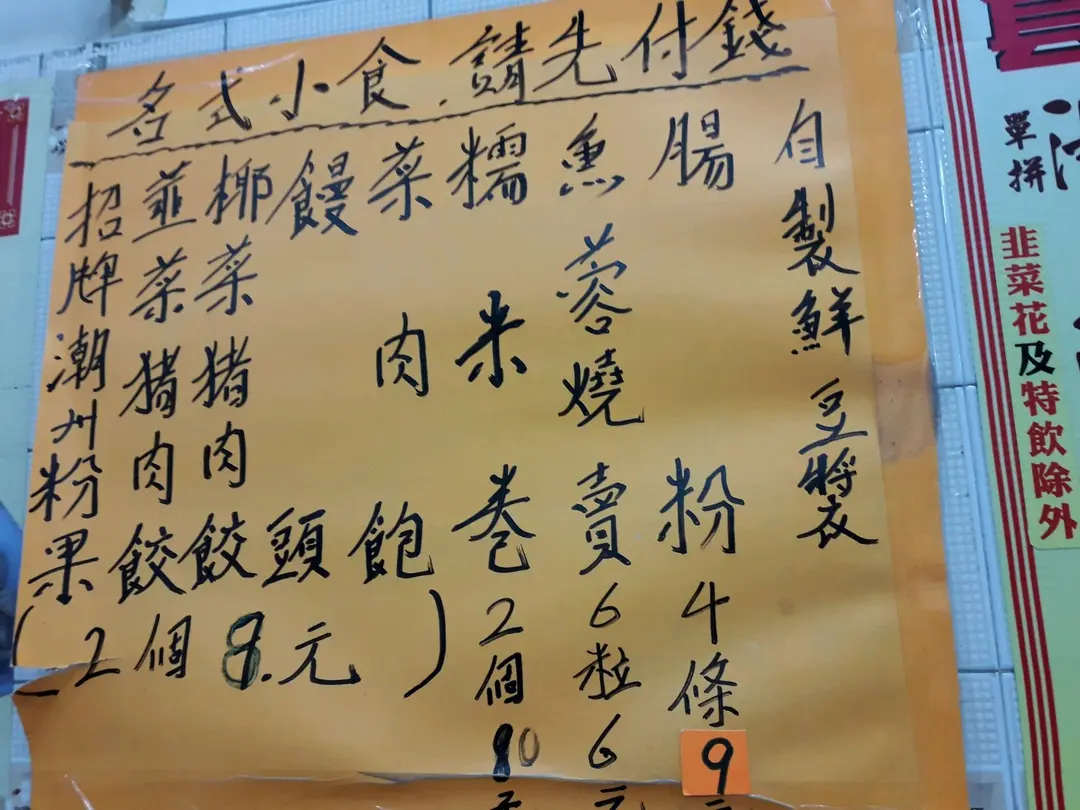 各式小食.請先付錢
自製鮮豆漿
腸粉4條9元
魚蓉燒賣6粒6元
糯米卷2個
菜肉飽
饅頭
椰菜猪肉餃
韮菜猪肉餃
招牌潮州粉果
(2個9.元)
單拼
韭菜花及特飲除外